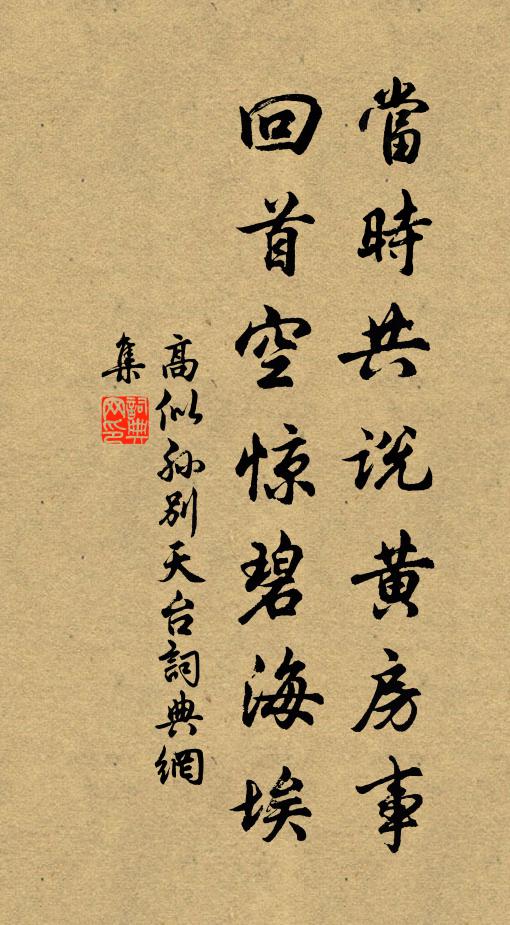 當時共说黄房事
回首空惊碧海埃
高似孙别天台詞典網
集
詞典
网印